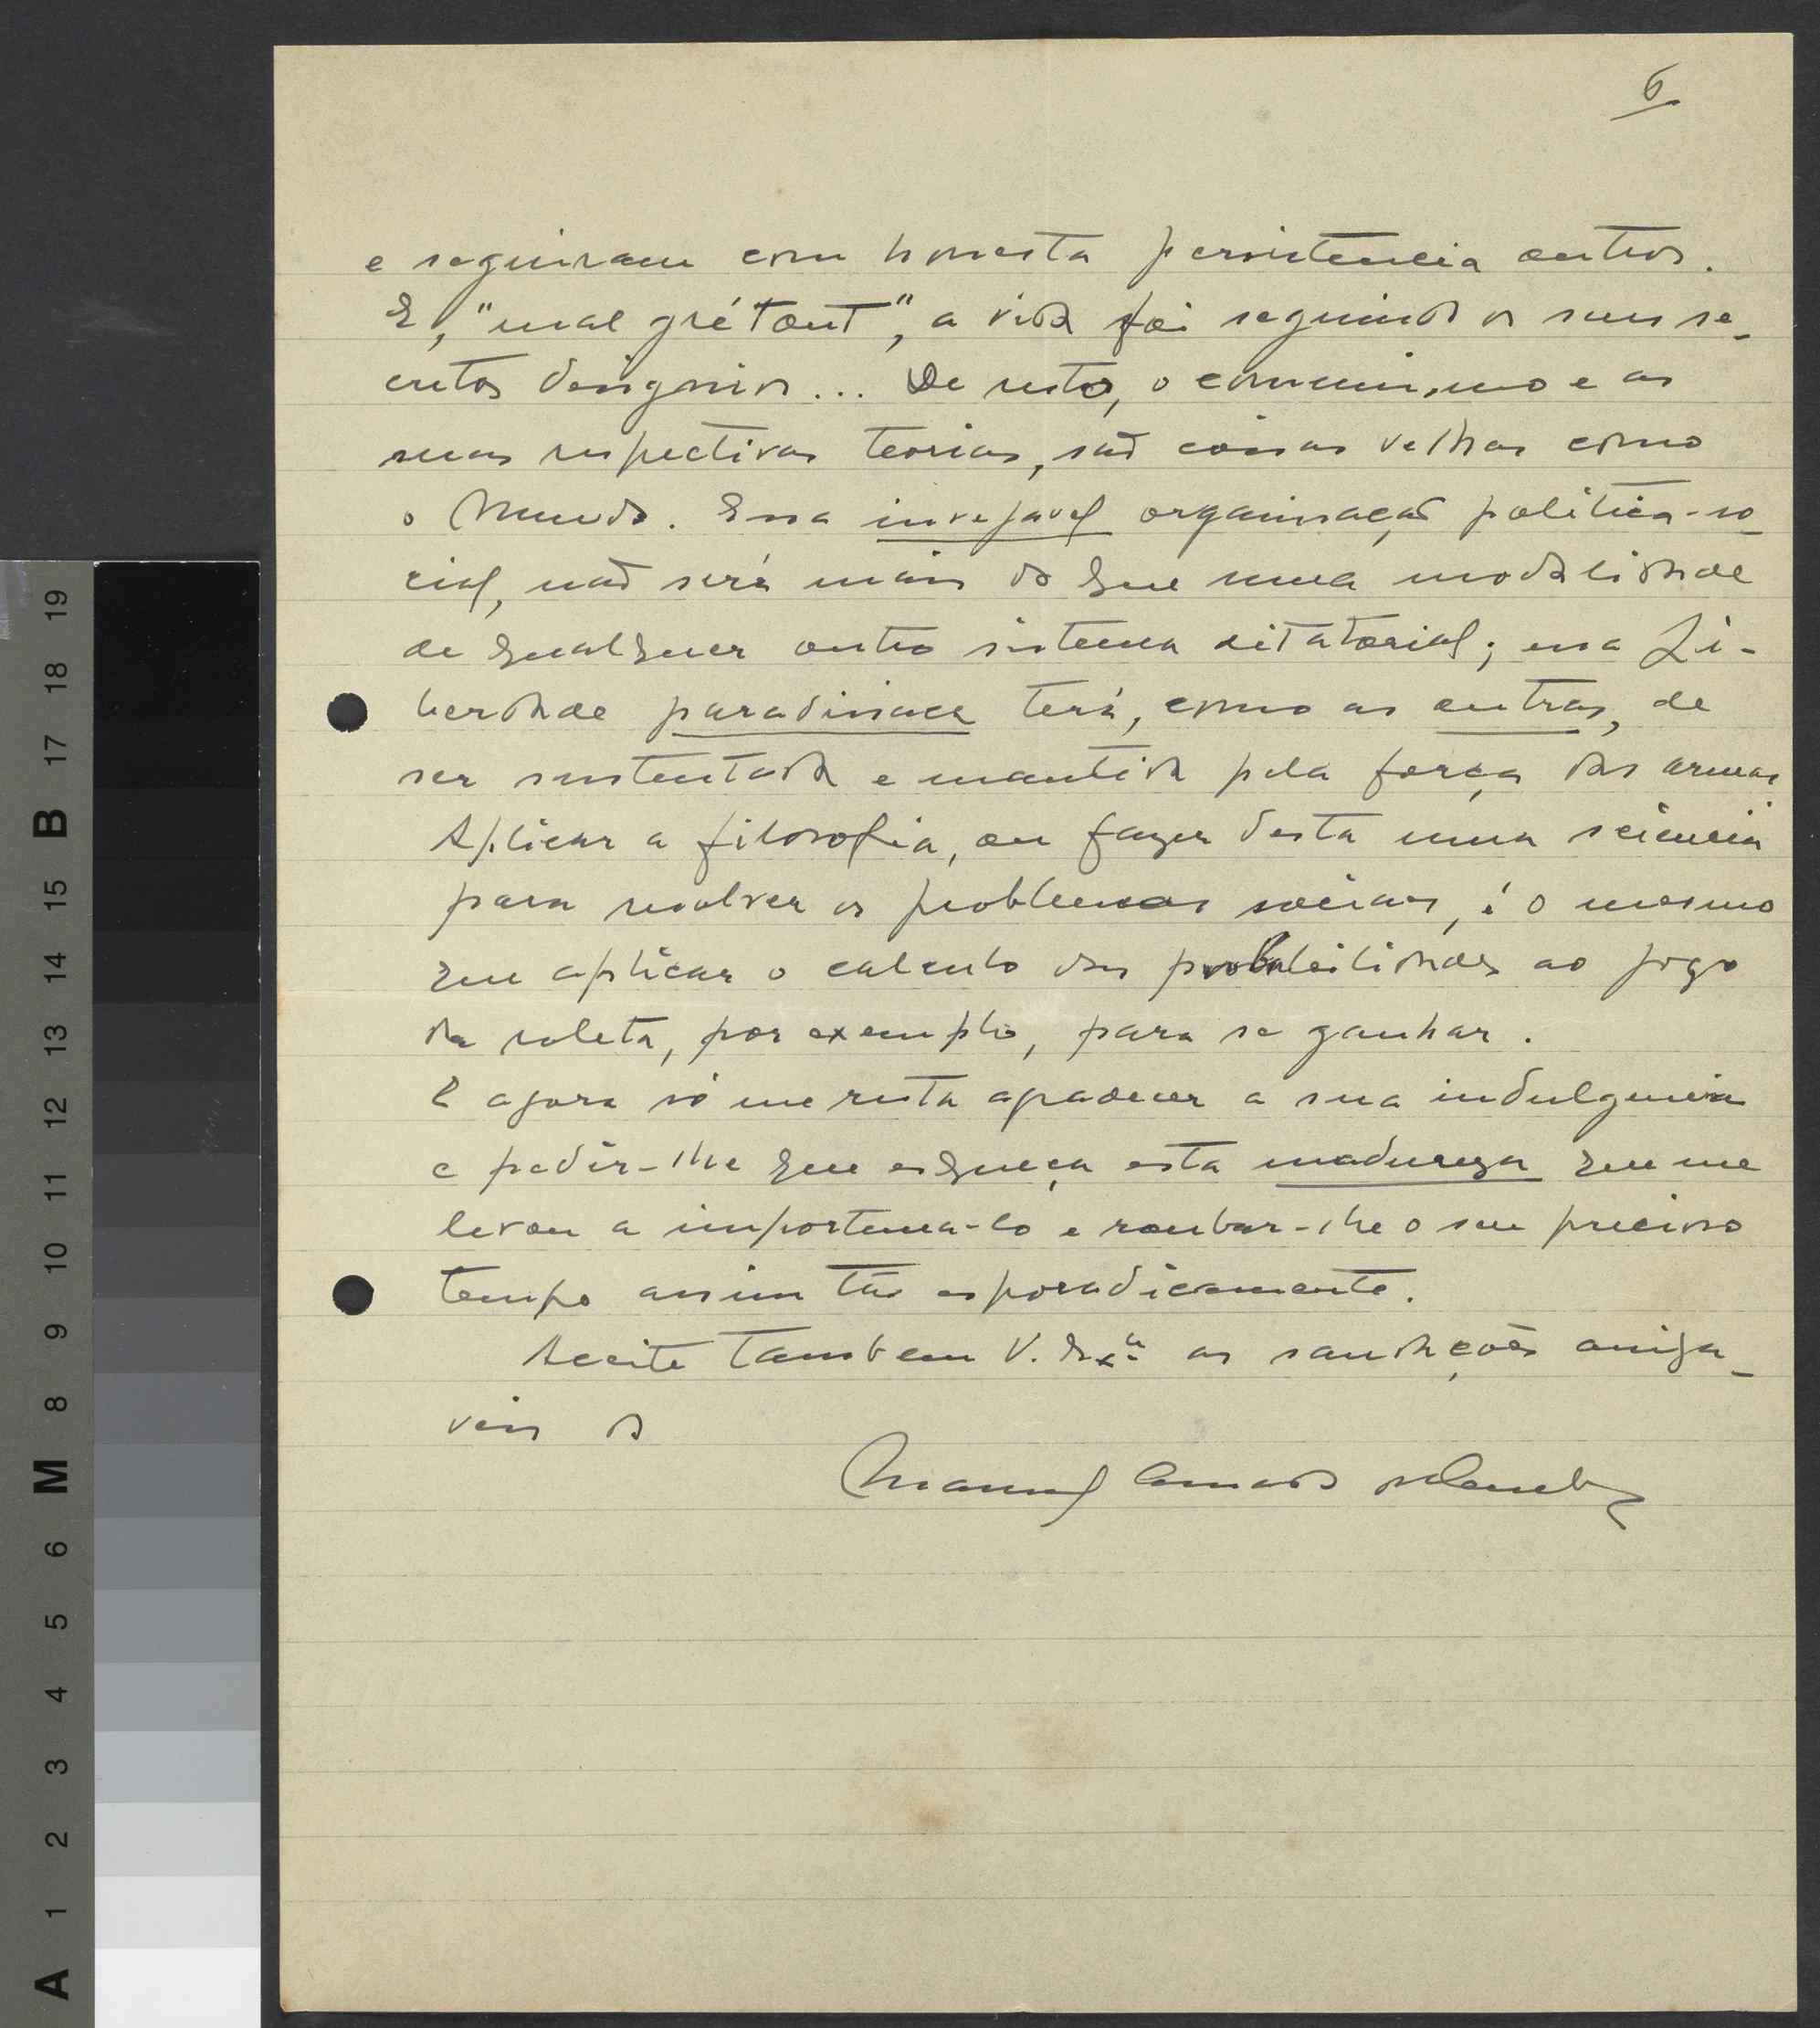 6
e seguiram com honesta persistencia outros.
E, "mal gré tout", a vida foi seguindo os seus se-
cretos designios... De resto, o comunismo e as
suas respectivas teorias, são coisas velhas como
o Mundo. Essa invejavel organisação politica-so-
cial, não será mais do que uma modalidade
de qualquer outro sistema ditatorial; essa Li-
berdade paradisiaca terá, como as outras, de
ser sustentada e mantida pela força das armas.
Aplicar a filosofia, ou fazer desta uma sciencia
para resolver os problemas sociaes, é o mesmo
que aplicar o calculo das probabilidades ao jogo
da roleta, por exemplo, para se ganhar.
E agora só me resta agradecer a sua indulgencia
e pedir-lhe que esqueça esta madureza que me
levou a importuna-lo e roubar-lhe o seu precioso
tempo assim tão esporadicamente.
Aceite tambem V. Exª as saudações amiga-
veis do
Manuel
19 18 17 B 15 14 13 12 11 10 9 8 M 6 5 4 3 2 1 A